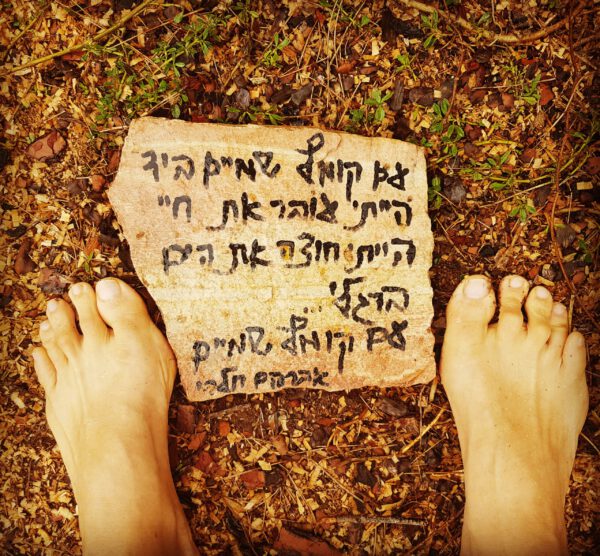 עם קומץ שמיים ביד
הייתי עובר את חיי
הייתי חוצה את הים
ברגלי...
עם קומץ שמיים
אברהם חלפי